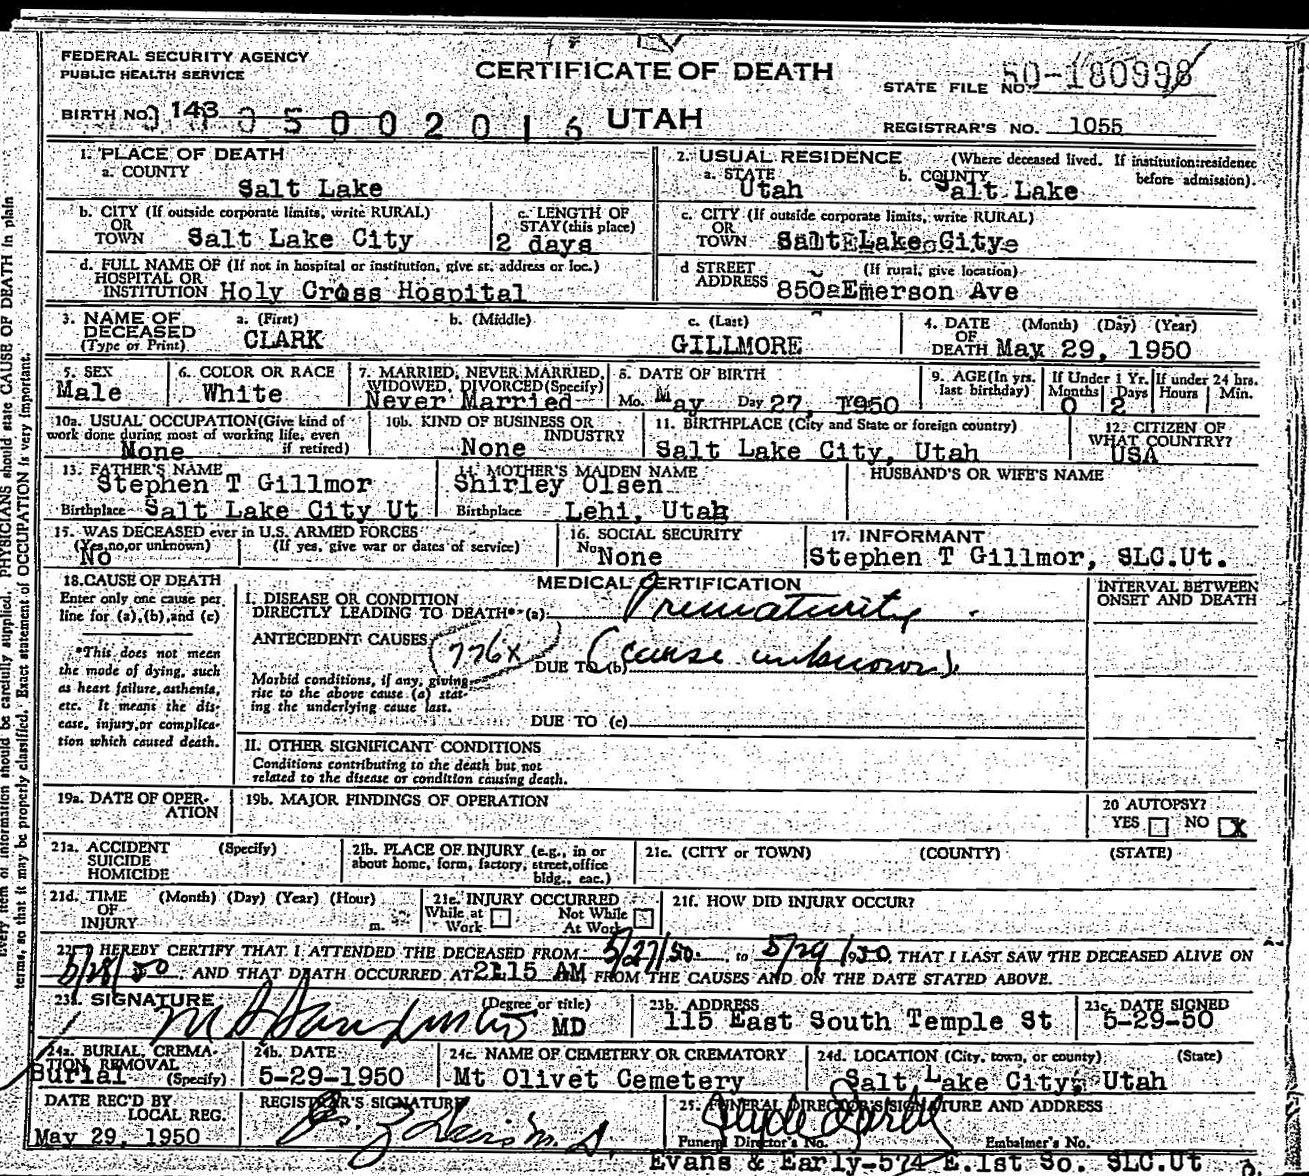 FEDERAL SECURITY AGENCY
PUBLIC HEALTH SERVICE
CERTIFICATE OF DEATH
STATE FILE NO. 50-180998
BIRTH NO. 143
05002016 UTAH
REGISTRAR'S NO. 1055
1. PLACE OF DEATH
a. COUNTY
Salt Lake
2. USUAL RESIDENCE (Where deceased lived. If institution:residence before admission).
a. STATE
Utah
b. COUNTY
Salt Lake
b. CITY (If outside corporate limits, write RURAL)
OR
TOWN Salt Lake City
c. LENGTH OF
STAY (this place)
2 days
c. CITY (If outside corporate limits, write RURAL)
OR
TOWN Salt Lake City
d. FULL NAME OF (If not in hospital or institution, give st. address or loc.)
HOSPITAL OR
INSTITUTION Holy Cross Hospital
d STREET (If rural, give location)
ADDRESS 850 Emerson Ave
3. NAME OF
DECEASED
(Type or Print)
a. (First)
CLARK
b. (Middle)
c. (Last)
GILLMORE
4. DATE (Month) (Day) (Year)
OF
DEATH May 29, 1950
5. SEX
Male
6. COLOR OR RACE
White
7. MARRIED, NEVER MARRIED,
WIDOWED, DIVORCED (Specify)
Never Married
8. DATE OF BIRTH
Mo. May Day 27, 1950
9. AGE (In yrs.
last birthday)
If Under 1 Yr.
Months Days
0 2
If under 24 hrs.
Hours Min.
10a. USUAL OCCUPATION (Give kind of
work done during most of working life, even
if retired)
None
10b. KIND OF BUSINESS OR
INDUSTRY
None
11. BIRTHPLACE (City and State or foreign country)
Salt Lake City, Utah
12. CITIZEN OF
WHAT COUNTRY?
USA
13. FATHER'S NAME
Stephen T Gillmor
Birthplace Salt Lake City Ut
14. MOTHER'S MAIDEN NAME
Shirley Olsen
Birthplace Lehi, Utah
HUSBAND'S OR WIFE'S NAME
15. WAS DECEASED ever in U.S. ARMED FORCES
(Yes,no,or unknown) (If yes, give war or dates of service)
No
16. SOCIAL SECURITY
No. None
17. INFORMANT
Stephen T Gillmor, SLC.Ut.
18. CAUSE OF DEATH
Enter only one cause per
line for (a), (b), and (c)
*This does not mean
the mode of dying, such
as heart failure, asthenia,
etc. It means the dis-
ease, injury, or complica-
tion which caused death.
MEDICAL CERTIFICATION
INTERVAL BETWEEN
ONSET AND DEATH
I. DISEASE OR CONDITION
DIRECTLY LEADING TO DEATH* (a) Prematurity
ANTECEDENT CAUSES
776x
DUE TO (b) (cause unknown)
Morbid conditions, if any, giving
rise to the above cause (a) stat-
ing the underlying cause last.
DUE TO (c)
II. OTHER SIGNIFICANT CONDITIONS
Conditions contributing to the death but not
related to the disease or condition causing death.
19a. DATE OF OPER-
ATION
19b. MAJOR FINDINGS OF OPERATION
20 AUTOPSY?
YES NO X
21a. ACCIDENT (Specify)
SUICIDE
HOMICIDE
21b. PLACE OF INJURY (e.g., in or
about home, form, factory, street,office
bldg., eac.)
21c. (CITY or TOWN) (COUNTY) (STATE)
21d. TIME (Month) (Day) (Year) (Hour)
OF
INJURY m.
21e. INJURY OCCURRED
While at Work Not While At Work
21f. HOW DID INJURY OCCUR?
22. I HEREBY CERTIFY THAT I ATTENDED THE DECEASED FROM 5/27/50, to 5/29/1950, THAT I LAST SAW THE DECEASED ALIVE ON
5/28/50 AND THAT DEATH OCCURRED AT 2:15 AM FROM THE CAUSES AND ON THE DATE STATED ABOVE.
23a. SIGNATURE (Degree or title)
MD
23b. ADDRESS
115 East South Temple St
23c. DATE SIGNED
5-29-50
24a. BURIAL, CREMA-
TION, REMOVAL
(Specify)
Burial
24b. DATE
5-29-1950
24c. NAME OF CEMETERY OR CREMATORY
Mt Olivet Cemetery
24d. LOCATION (City, town, or county) (State)
Salt Lake City, Utah
DATE REC'D BY
LOCAL REG.
May 29, 1950
REGISTRAR'S SIGNATURE
25. FUNERAL DIRECTOR'S SIGNATURE AND ADDRESS
Funeral Director's No. Embalmer's No.
Evans & Early-574 E.1st So. SLC.Ut.
Every item of information should be carefully supplied. PHYSICIANS should state CAUSE OF DEATH in plain
terms, so that it may be properly classified. Exact statement of OCCUPATION is very important.